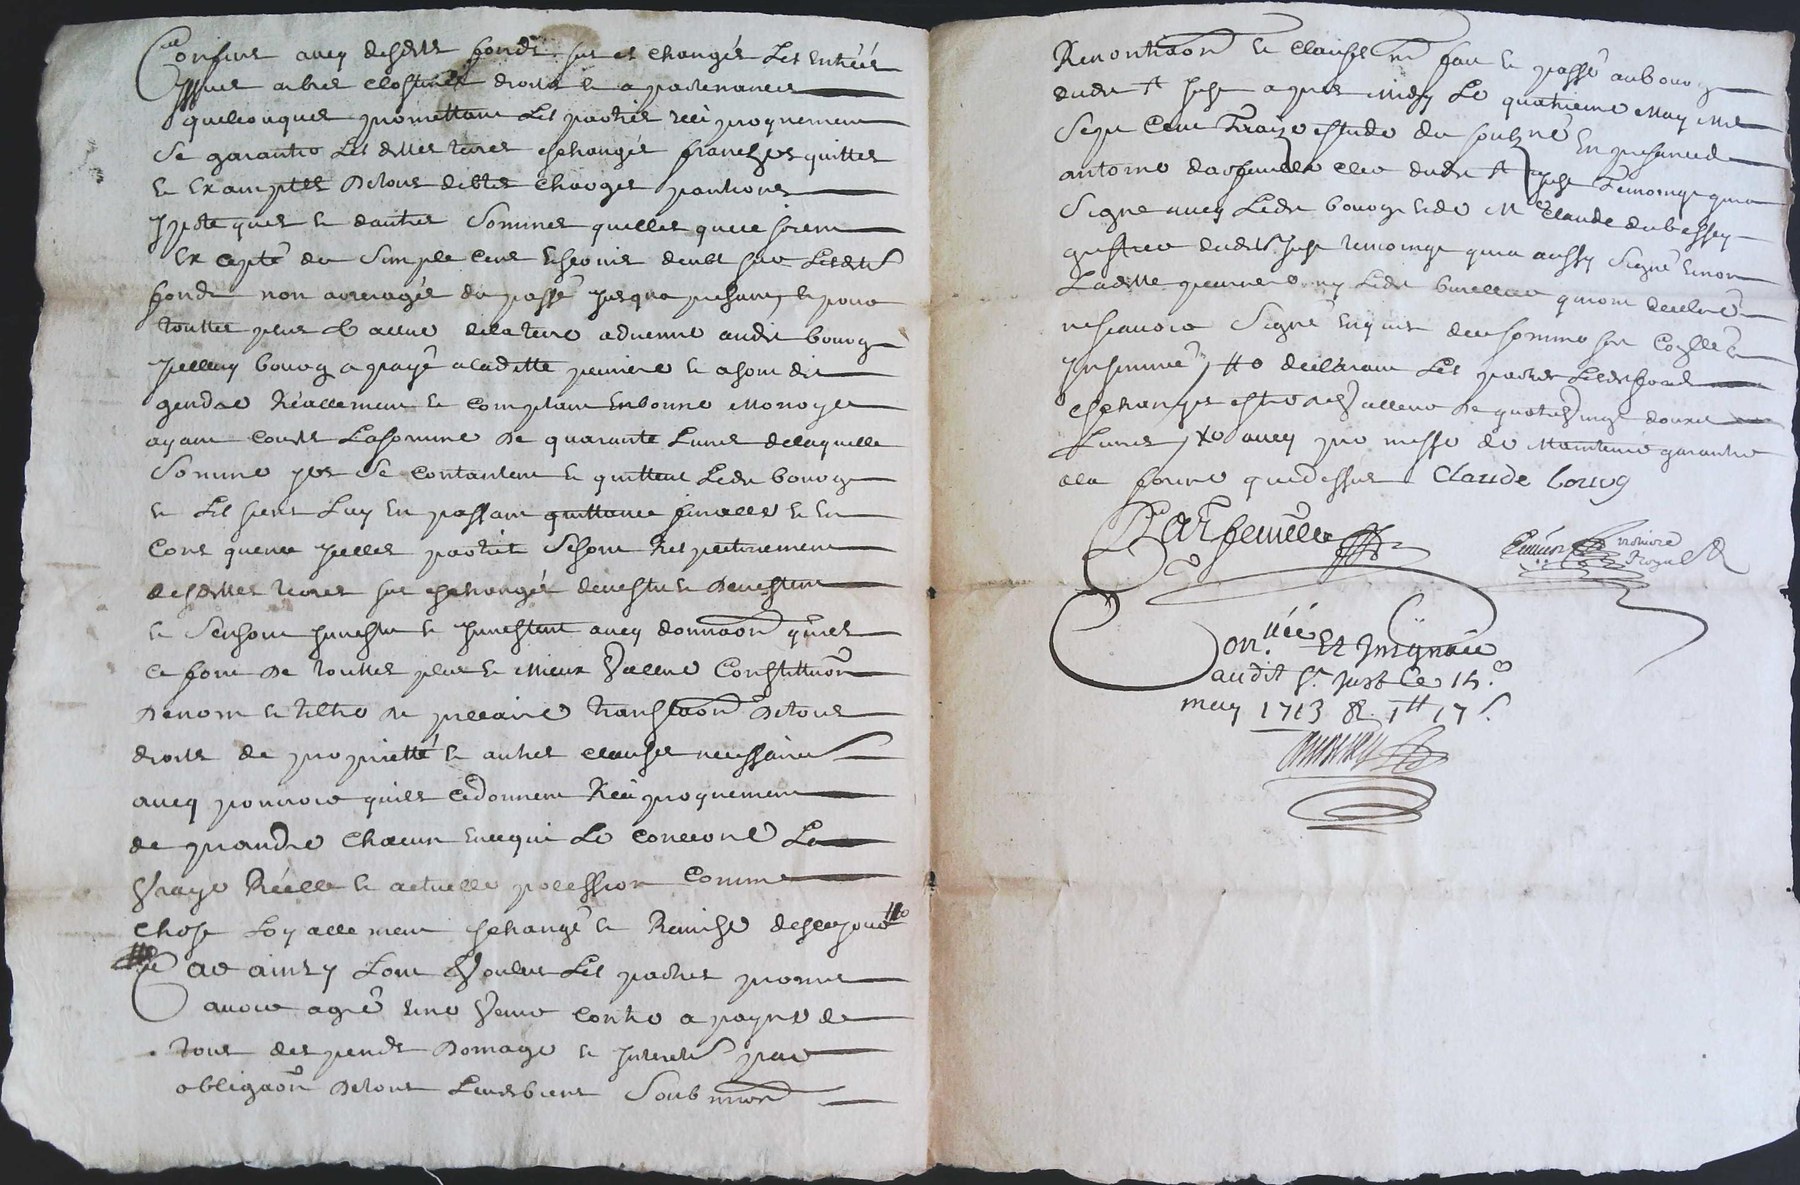 Confins avecq desdits fonds sus es changés Les entrées
Issues arbres clostures droits et apartenances
quelconques promettant Les parties réciproquement
Se garantir Les dittes terres eschangés franches quittes
et examptes De tous debtes charges pantions
Ypoteques et dautres Sommes quelles quelle soient
Excepté du Simple cens et servis deubt sur Lesdits
fonds non arreragés du passé jusqua presant, et pour
touttes plus valleur de la terre advenue audit bourg
Icelluy bourg a payé a laditte perniere et a son dit
gendre Réallement et Comptant en bonne Monoye
ayant Cours La somme De quarante Livres de laquelle
Somme yes Se Contantent et quittent Ledit bourg
et Les siens Luy En passant quittance finalle et en
Cons quence Icelles parties Se sont Respectivement
desdittes terres sus eschangés devestu et Devestent
et Se sont Investu et Investent avecq donnaon quiles
ce font De touttes plus et Mieux Valleur Constittuon
De nom et tiltre de precaire translaon De tous
droits de proprietté et autres clauses necessaires
avecq pouvoir quils Cedonnent Réciproquement
de prandre chacun en ce qui Le concerne La
Vraye Réelle et actuelle pocession comme
chose Loyallement eschangé et Remise des ce jour
Car ainsy Lont Voulus Les parties promis
avoir agré sans Venir contre a payne de
tous despends Domage et Interets par
obligaon De tous Leurs biens Soubmion
Renontiaon et clauses etc fait et passé au bourg
dudit St Just apres Midy Le quatrieme May Mil
Sept Cent Traize estude du soubzné En presance de
antoine darfeuille clerc dudit St Just Temoings qui a
Signé avecq Ledit bourg et de Mre Claude dubessey
greffier dudit St Just temoings qui a aussy Signé et non
Laditte perniere ny Ledit qui ont declaré
ne scavoir Signé enquis et de ce sommé sur Coylle
Insinuue, declarant Les parties Lesdits fonds
eschanges estre de Valleur De quatre Vingt douze
Livres avecq promesse de Maintenir garantir
a la forme que dessus Claude bourg
Darfeuille
notaire
Royal
Con.llée Et Insignuée
audit St Just Ce 15.
may 1713 R 1ll 17 s.